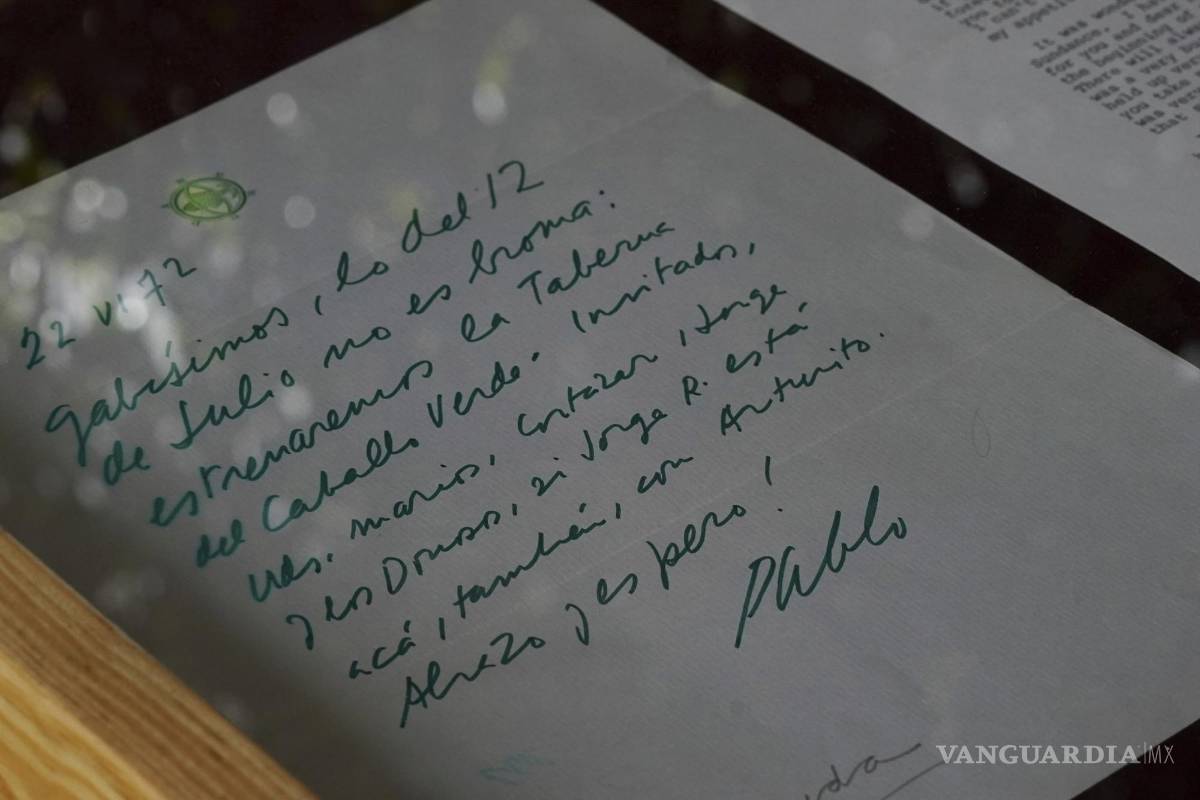 22 VI 72
Gabísimos, lo del 12
de Julio no es broma:
estrenaremos la Taberna
del Caballo Verde. Invitados,
Uds. Marios, Cortázar, Jorge
y los Donoso, si Jorge R. está
acá, también, con Arturito.
Abrazo y espero!
Pablo
It was
Sundance. I
for you and dear
the beginning of
There will
was a very
held up
you take
was very
that
my appetit
VANGUARDIA|MX